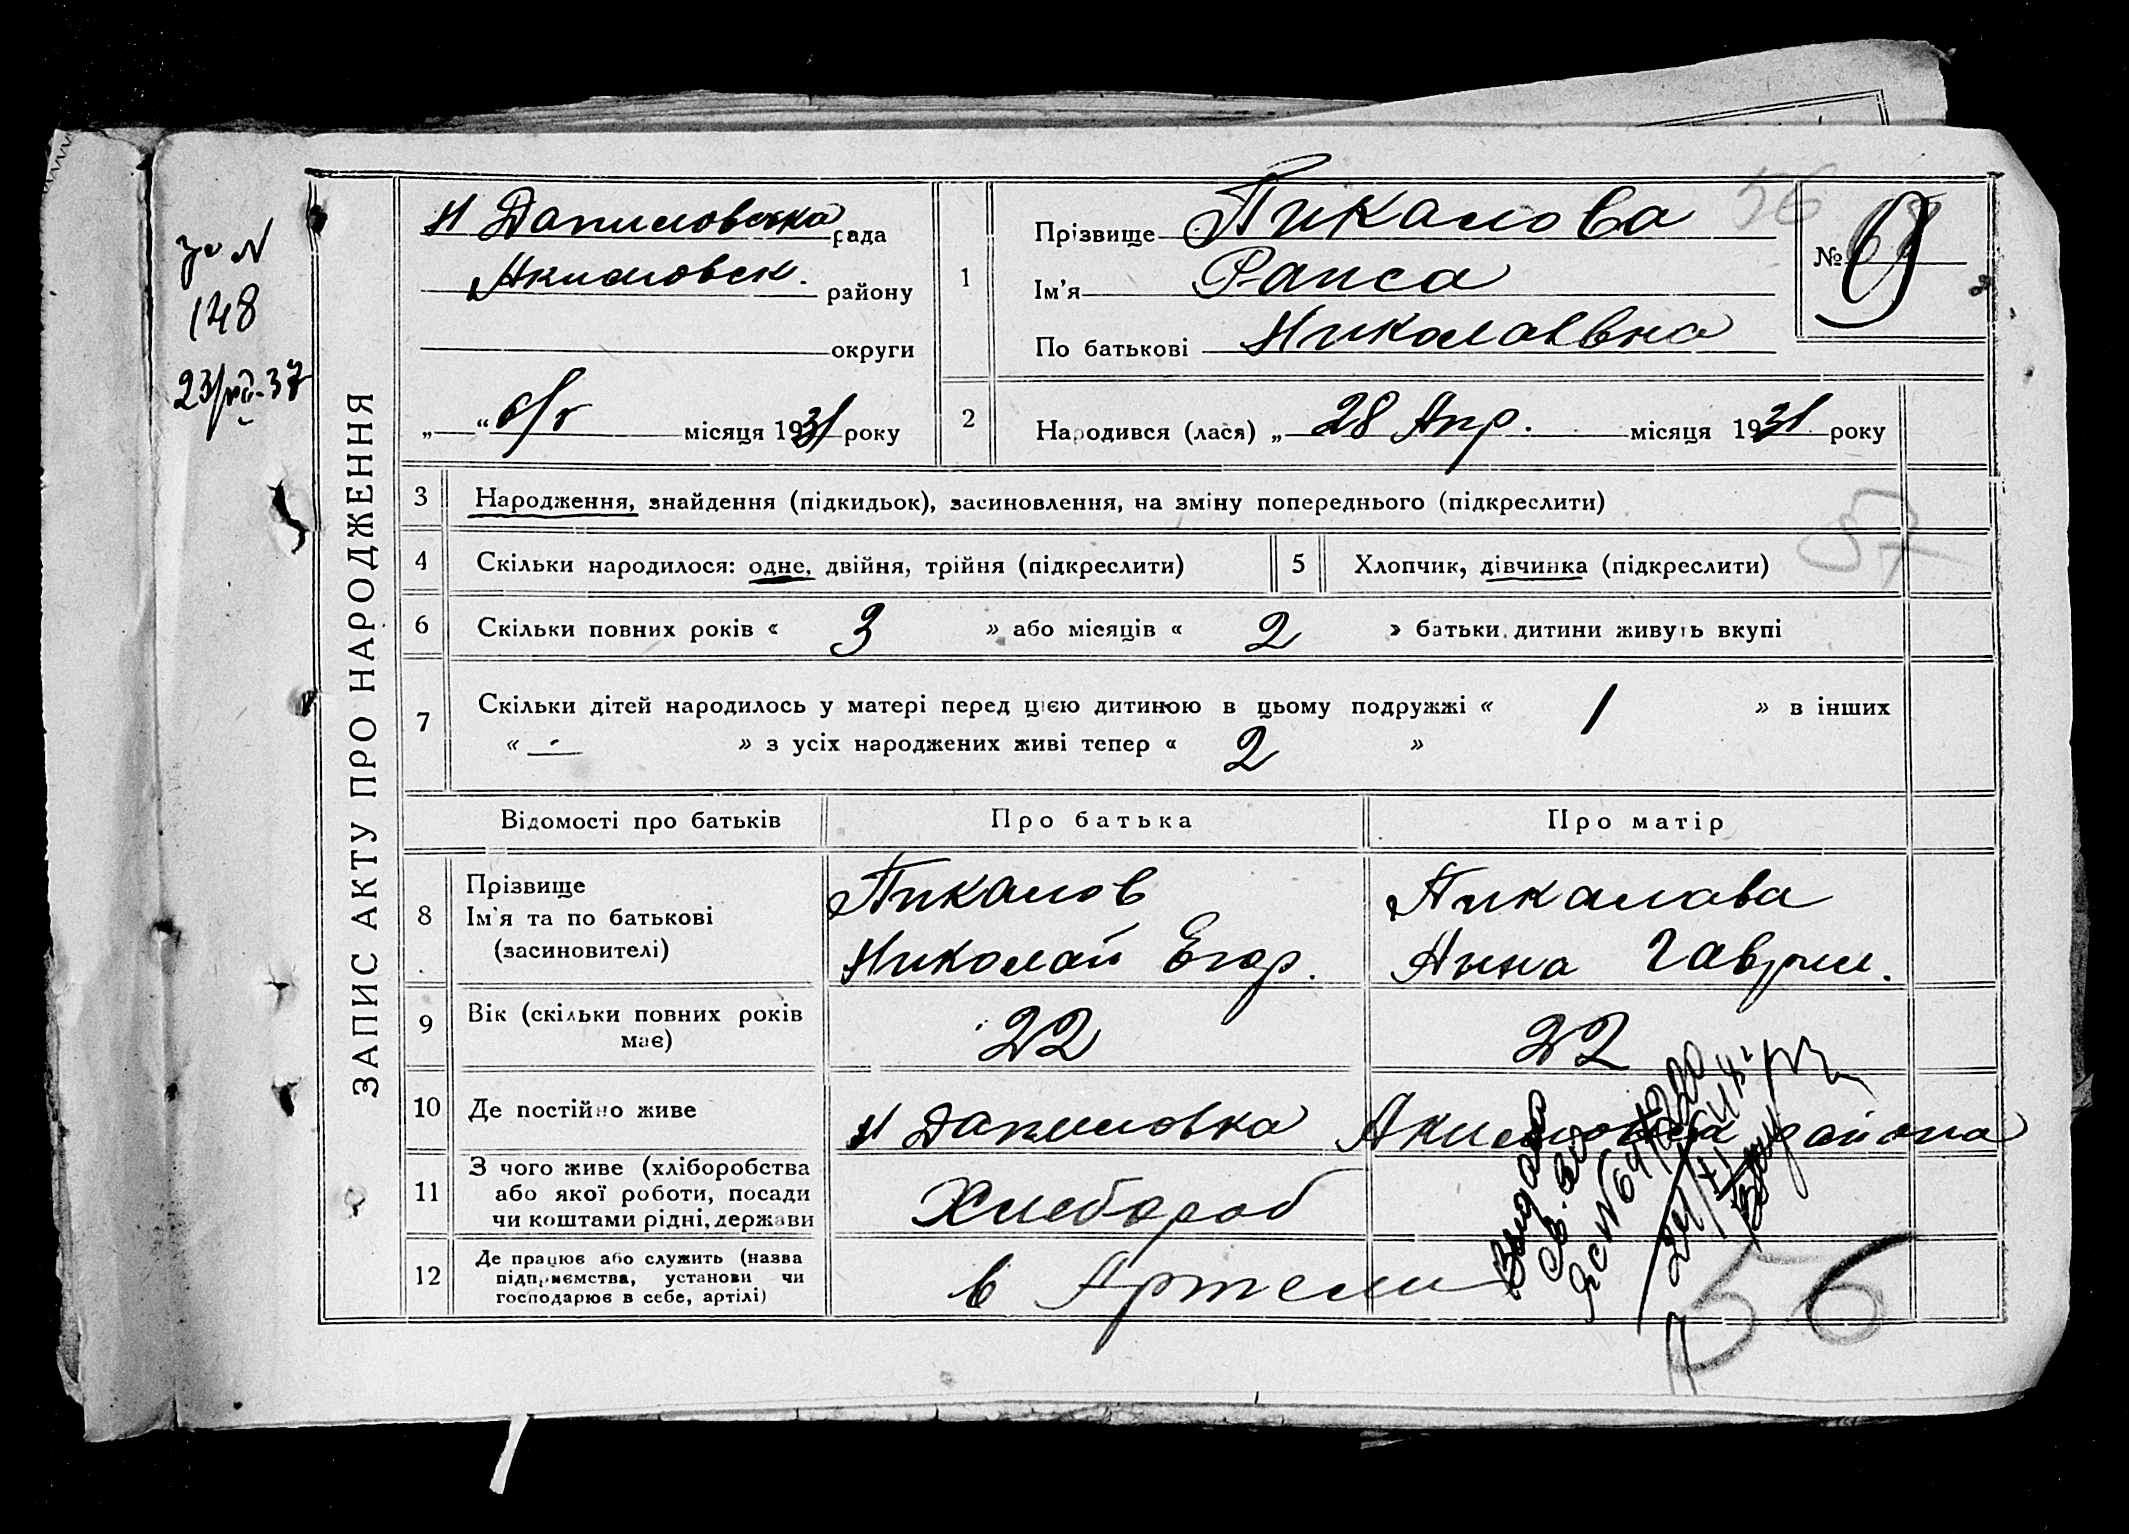 за N
148
23/VII-37
ЗАПИС АКТУ ПРО НАРОДЖЕННЯ
Н Даниловська рада
Акимовск. району
округи
„ “ 6/V місяця 1931 року
1
Прізвище Пикалова
Ім'я Раиса
По батькові Николаевна
56
№
2
Народився (лася) „ 28 Апр. місяця 1931 року
3 Народження, знайдення (підкидьок), засиновлення, на зміну попереднього (підкреслити)
57
4 Скільки народилося: одне, двійня, трійня (підкреслити)
5 Хлопчик, дівчинка (підкреслити)
6 Скільки повних років « 3 » або місяців « 2 » батьки дитини живуть вкупі
7 Скільки дітей народилось у матері перед цією дитиною в цьому подружжі « 1 » в інших
« — » з усіх народжених живі тепер « 2 »
Відомості про батьків Про батька Про матір
8 Прізвище
Ім'я та по батькові
(засиновителі)
Пикалов
Николай Егор.
Пикалова
Анна Гаврил.
9 Вік (скільки повних років
має)
22
22
10 Де постійно живе
Н Даниловка Акимовск района
11 З чого живе (хліборобства
або якої роботи, посади
чи коштами рідні, держави
Хлебороб
12 Де працює або служить (назва
підприємства, установи чи
господарює в себе, артілі)
в Артели
Выдано
св.
56